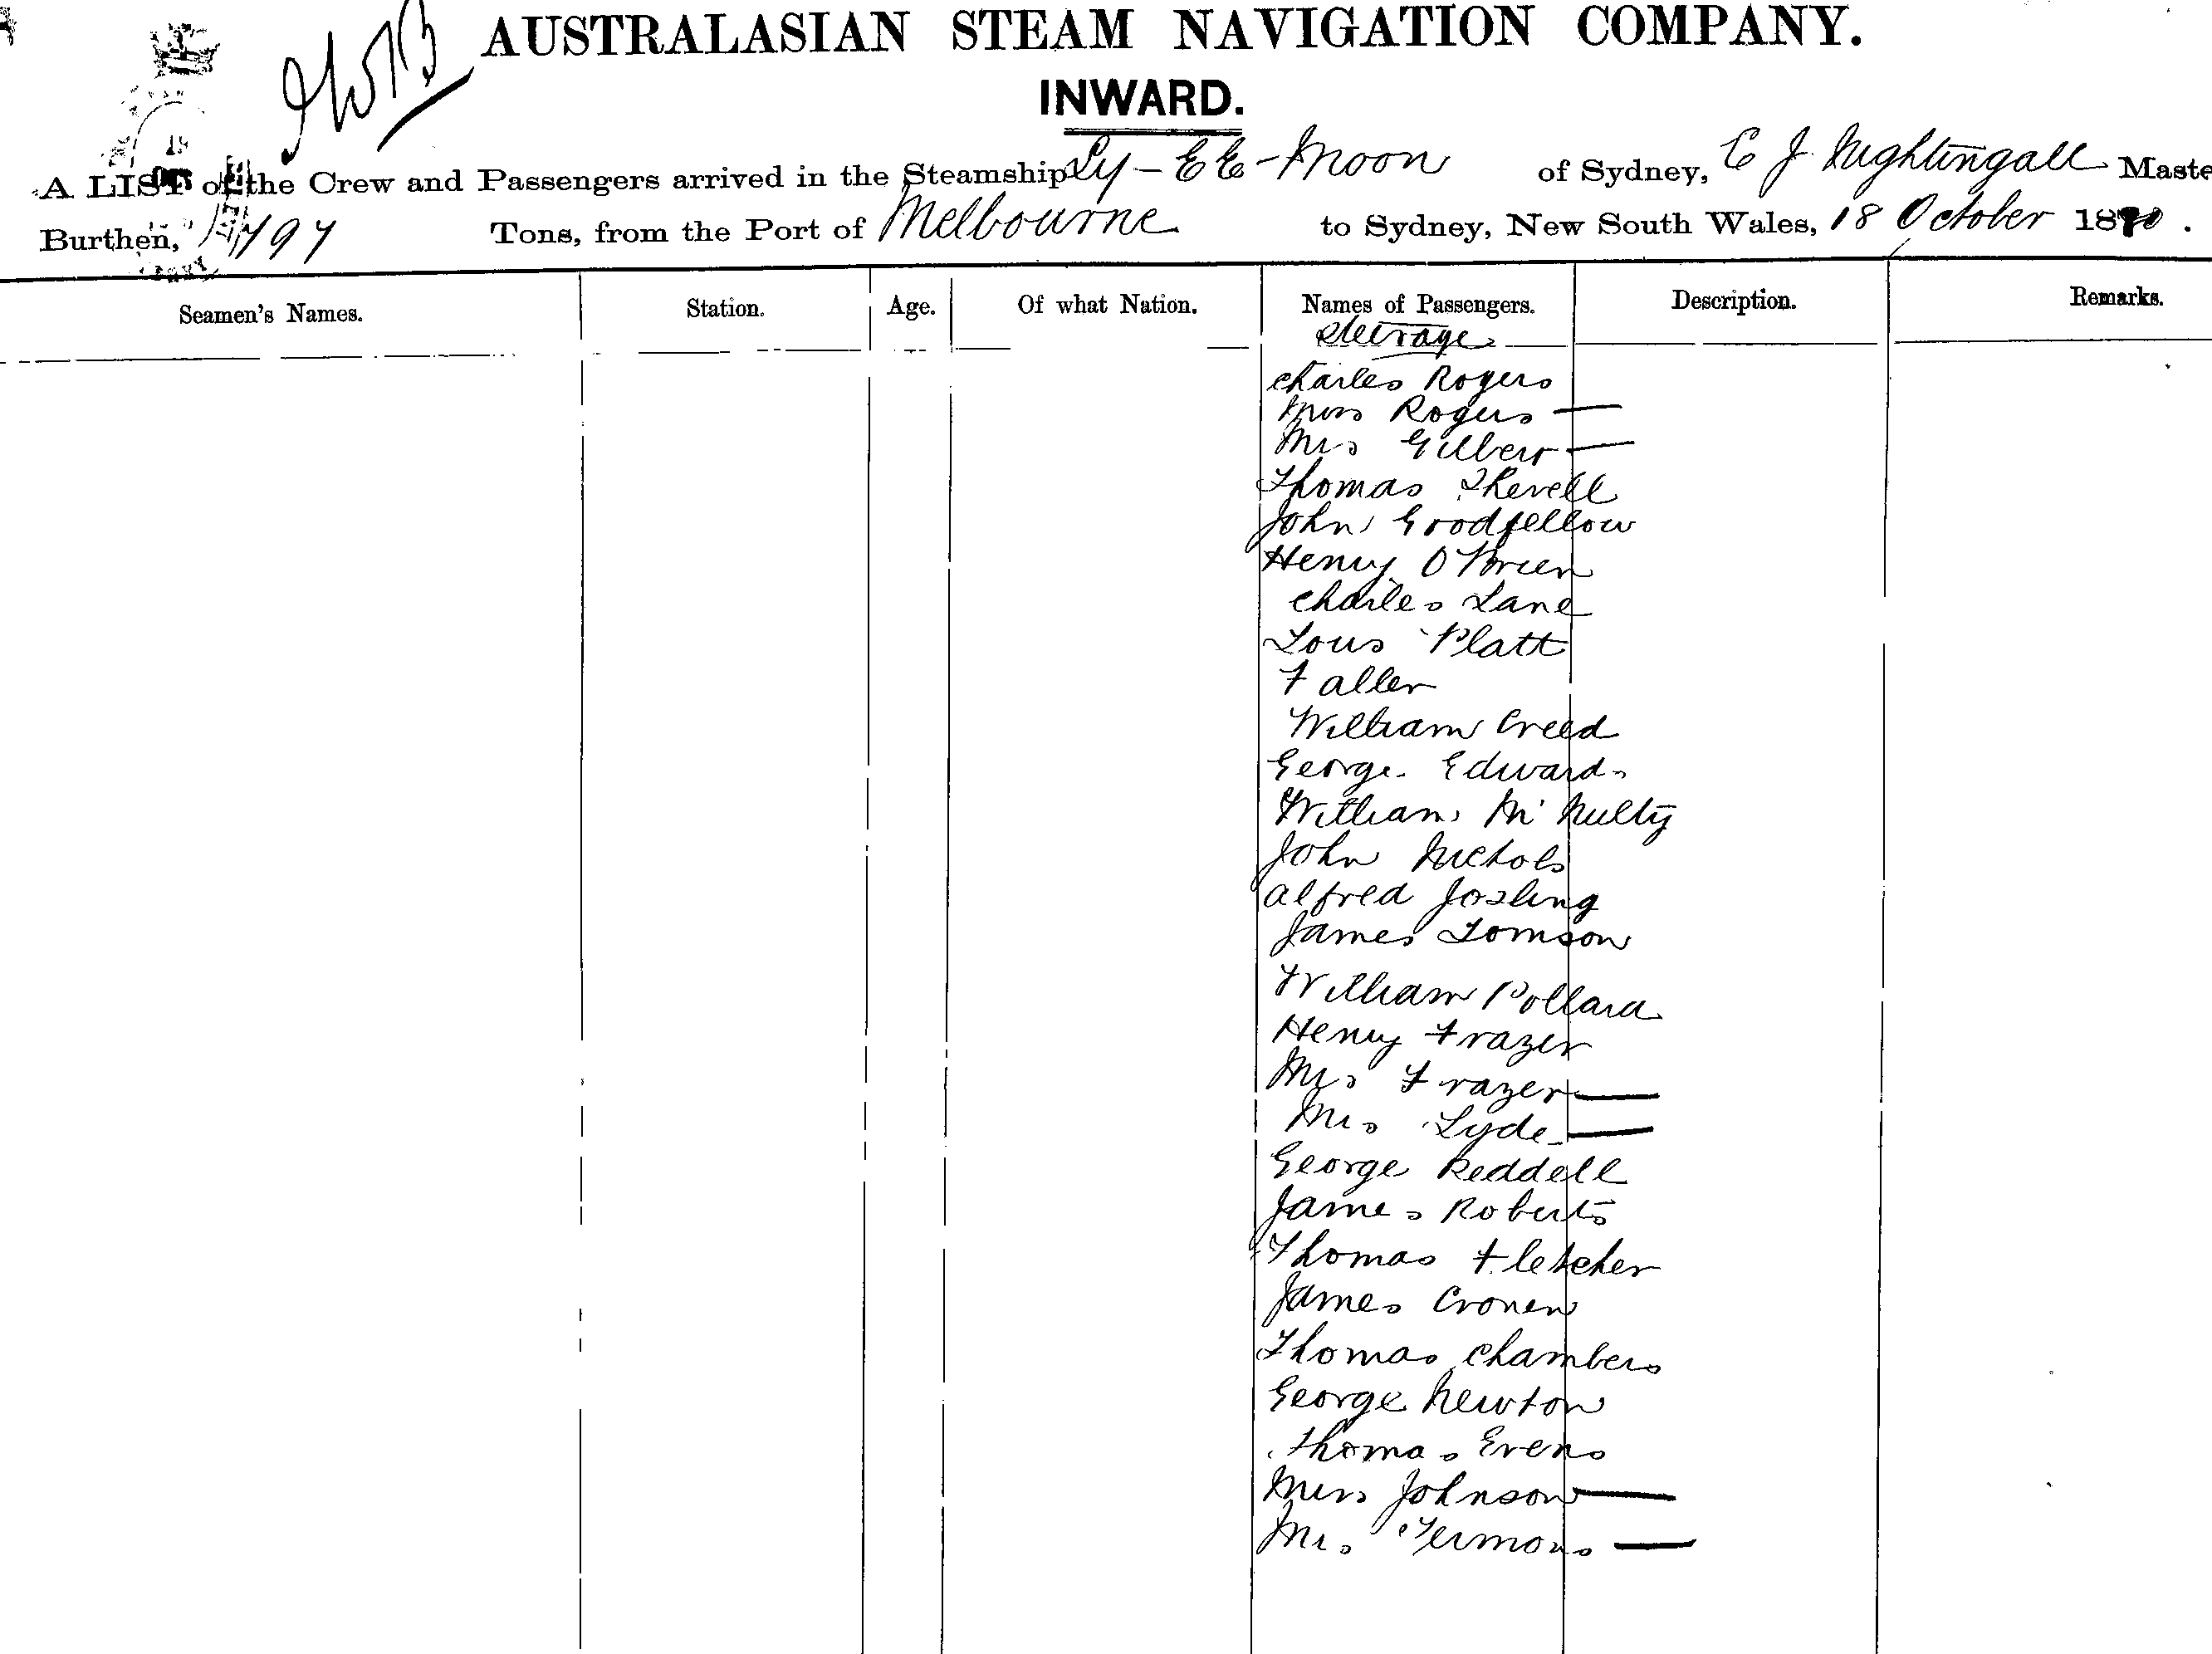 AUSTRALASIAN STEAM NAVIGATION COMPANY.
INWARD.
A LIST of the Crew and Passengers arrived in the Steamship Ly-EE-Moon of Sydney, C J Nightingall Maste
Burthen, Tons, from the Port of Melbourne to Sydney, New South Wales, 18 October 18
Seamen's Names. Station. Age. Of what Nation. Names of Passengers. Description. Remarks.
Steerage
Charles Rogers
Miss Rogers —
Mrs Gilbert —
Thomas
John Goodfellow
Henry O'Brien
Charles Lane
Louis Platt
F aller
William Creed
George Edwards
William McNulty
John Nichols
Alfred Josling
James Tomson
William Pollard
Henry Frazer
Mrs Frazer —
Mrs Lyde —
George Reddell
James Roberts
Thomas Fletcher
James Cronen
Thomas Chambers
George Newton
Thomas Evens
Miss Johnson —
Mrs —